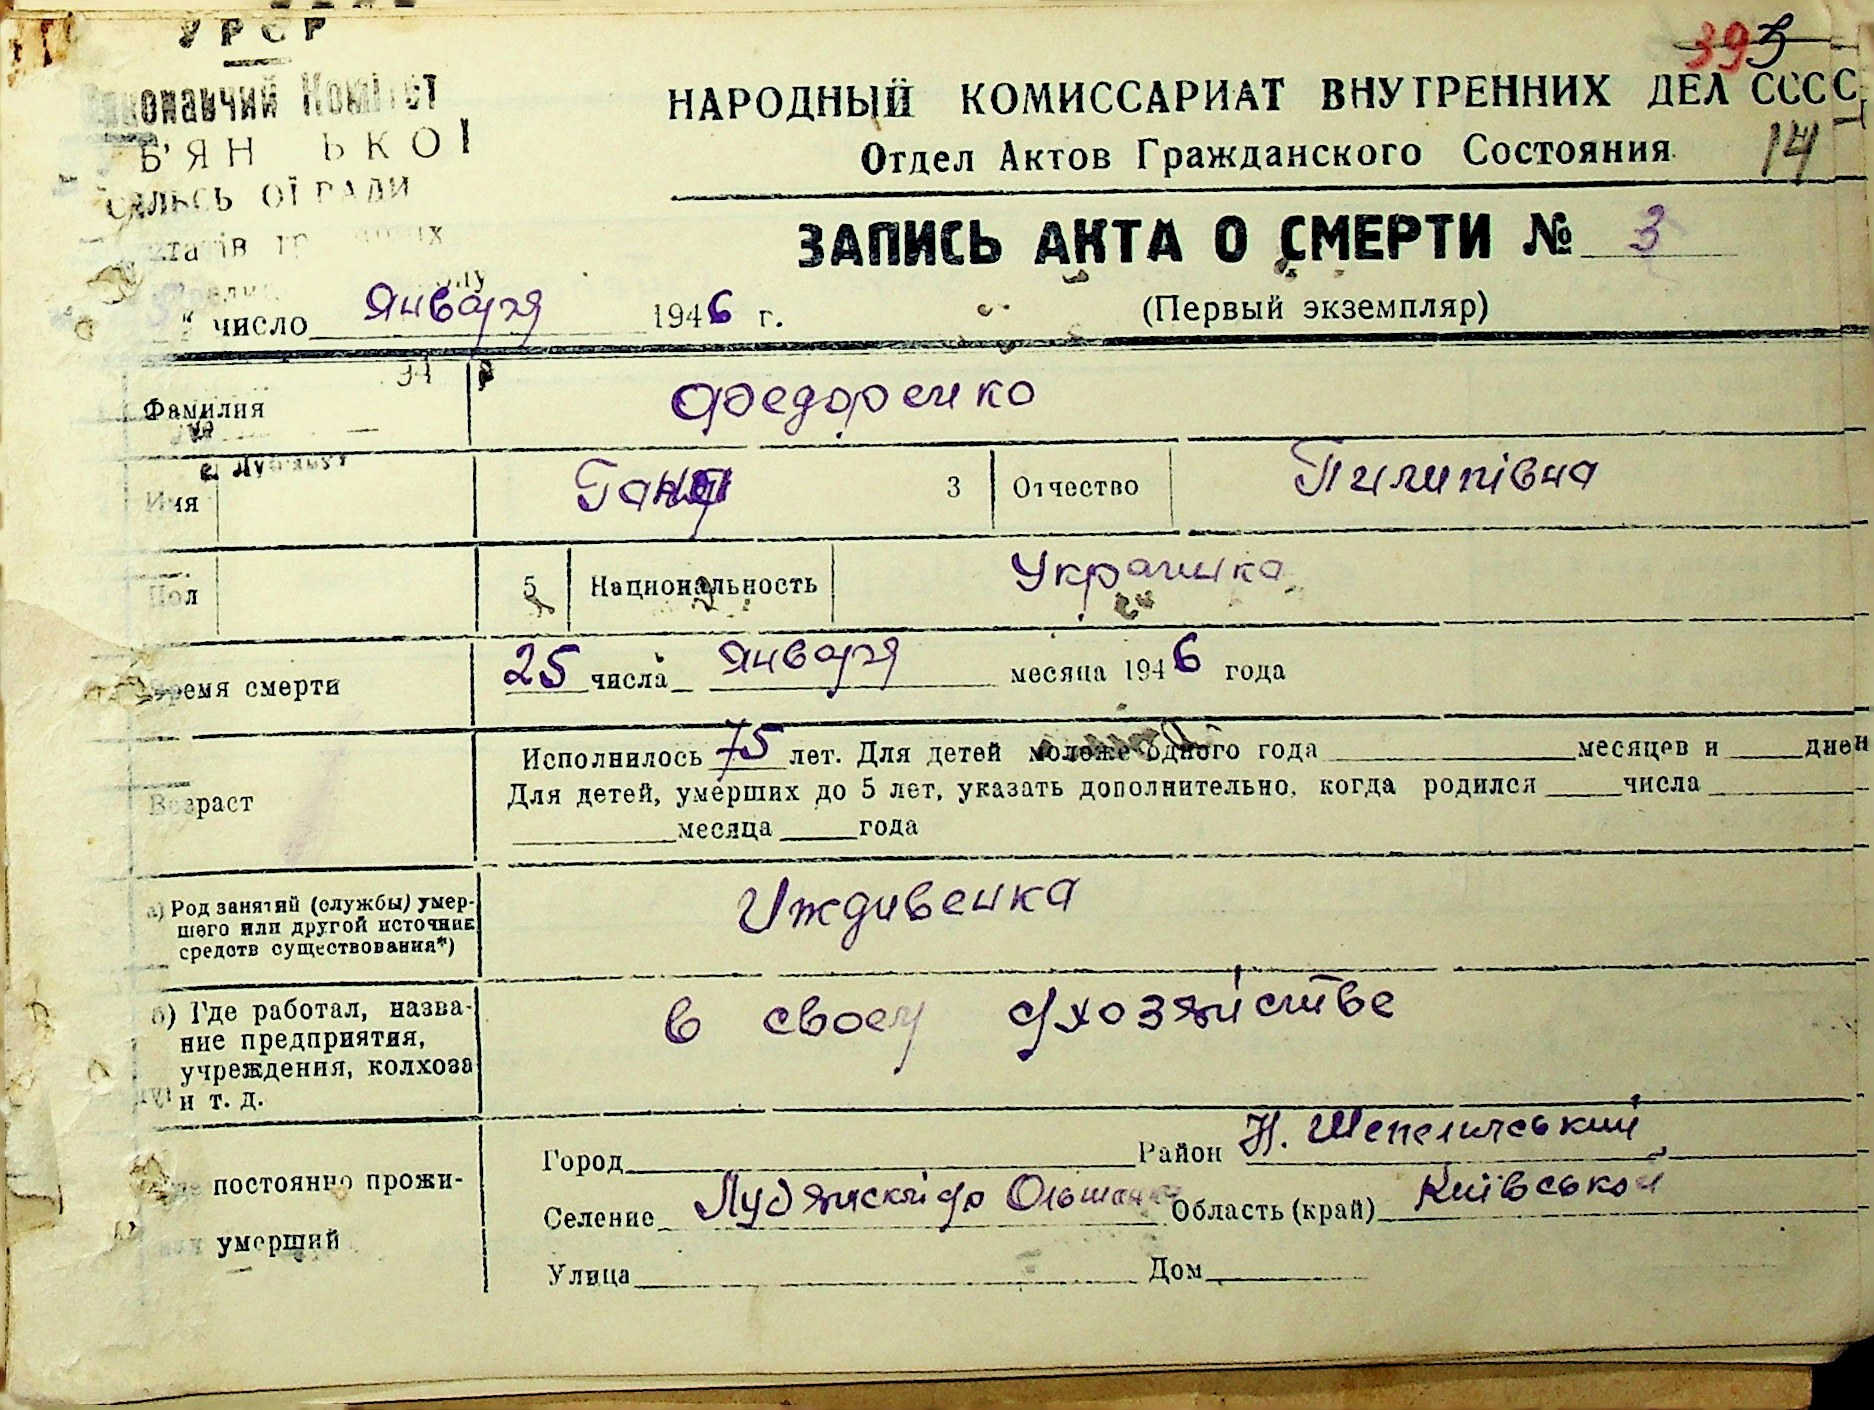 УРСР
393
Виконавчий Комітет
НАРОДНЫЙ КОМИССАРИАТ ВНУТРЕННИХ ДЕЛ СССР
14
Отдел Актов Гражданского Состояния
ЗАПИСЬ АКТА О СМЕРТИ № 3
число Января 1946 г.
(Первый экземпляр)
Фамилия Федоренко
Имя Ганя 3 Отчество Пилипівна
Пол 5 Национальность Украинка
Время смерти 25 числа Января месяца 1946 года
Возраст
Исполнилось 75 лет. Для детей моложе одного года месяцев и дней
Для детей, умерших до 5 лет, указать дополнительно, когда родился числа
месяца года
а) Род занятий (службы) умер-
шего или другой источник
средств существования*)
Иждивенка
б) Где работал, назва-
ние предприятия,
учреждения, колхоза
и т. д.
в своем хозяйстве
постоянно прожи-
умерший
Город Район Н. Шепеличський
Селение Область (край) Київськой
Улица Дом